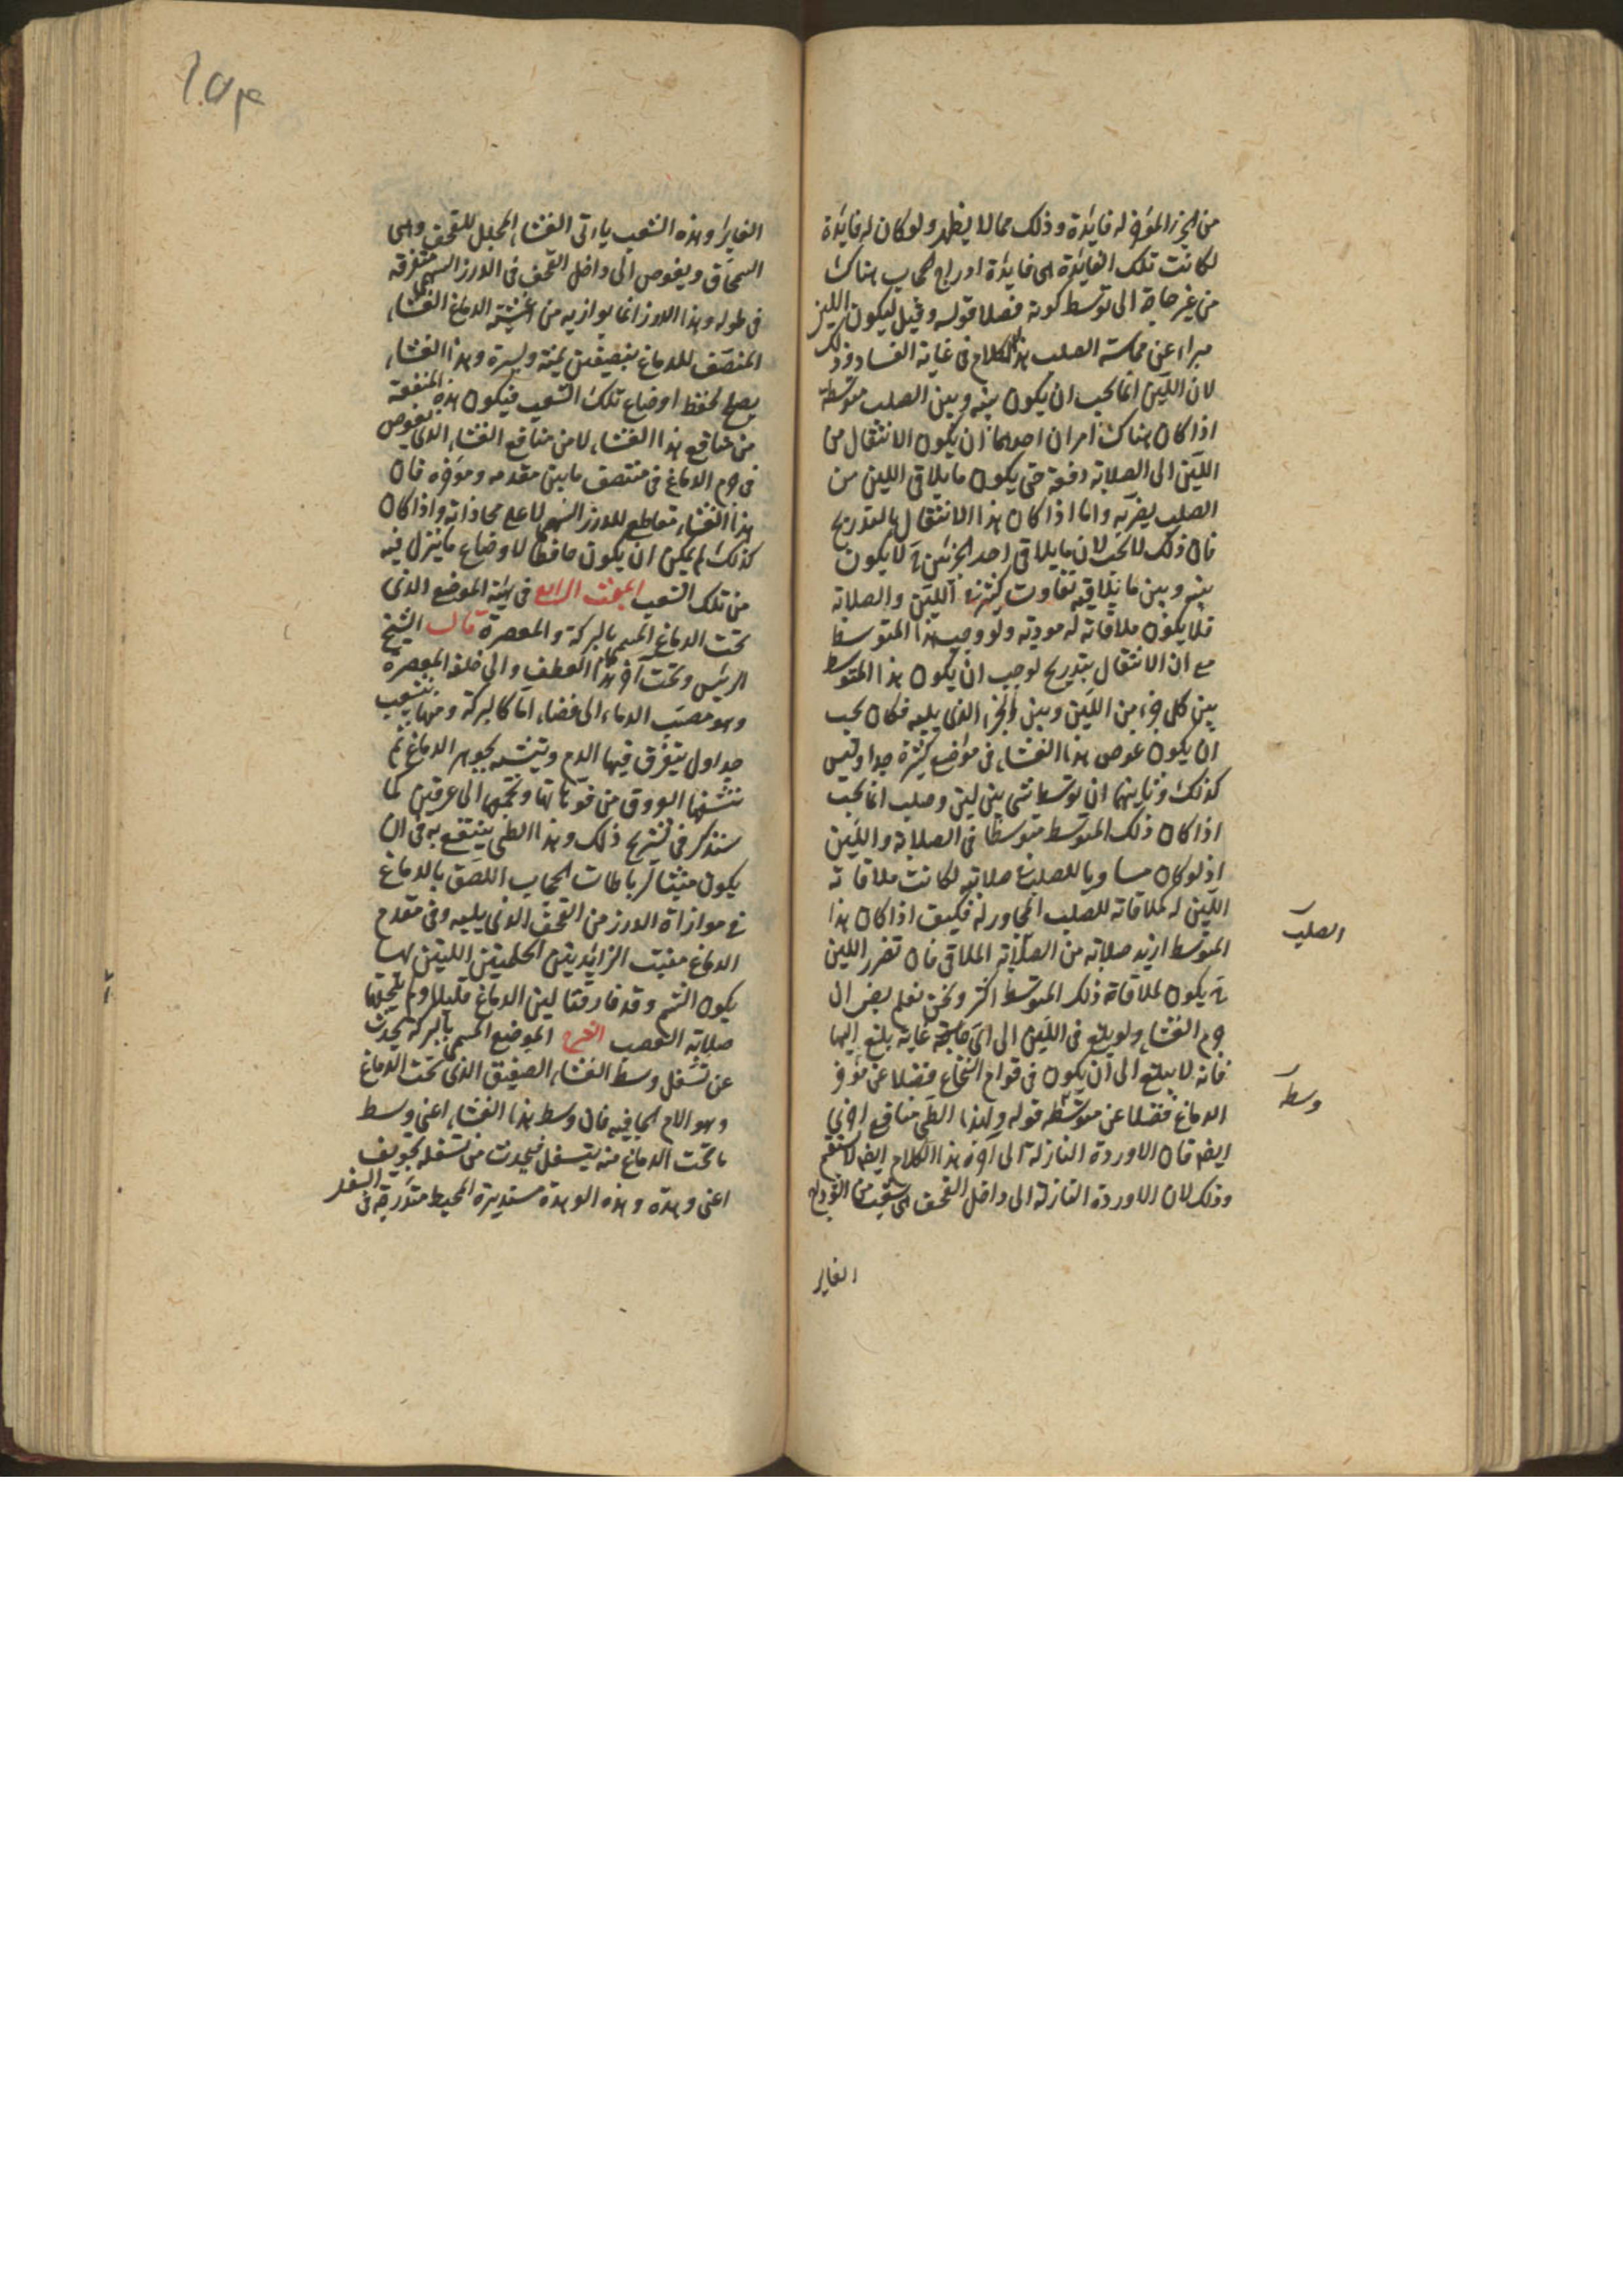 من الجزء المؤخر له فايدة وذلك مما لا يظهر ولو كان له فايدة
لكانت تلك الفايدة هى فايدة ادراج الحجاب هناك
من غير حاجة الى توسط كونه فصلا قوله وقيل ليكون اللين
مبراء عن مماسته الصلب هذا الكلام فى غاية الفساد وذلك
لان اللين انما يجب ان يكون بينه وبين الصلب متوسط
اذا كان هناك امران احدهما ان يكون الانتقال من
اللين الى الصلابة دفعة حتى يكون ما يلاقى اللين من
الصلب يضر به واما اذا كان هذا الانتقال بالتدريج
فان ذلك لا يجب لان ما يلاقى احد الجزئين لا يكون
بينه وبين ما يلاقيه تفاوت كثير فى اللين والصلابة
فلا يكون ملاقاته له موذية ولو وجب هذا المتوسط
مع ان الانتقال بتدريج لوجب ان يكون هذا المتوسط
بين كل جزء من اللين وبين الجزء الذى يليه فكان يجب
ان يكون غوص هذا الغشاء فى مواضع كثيرة جدا وليس
كذلك وثانيهما ان توسط شى بين لين وصلب انما يجب
اذا كان ذلك المتوسط متوسطا فى الصلابة واللين
اذ لو كان مساويا للصلب فى صلابته لكانت ملاقاته
اللين له كملاقاته للصلب المجاور له فكيف اذا كان هذا
المتوسط ازيد صلابة من الصلابة الملاقى فان تضرر اللين
يكون لملاقاة ذلك المتوسط اكثر ونحن نعلم ان
جرم الغشاء ولو بلغ فى اللين الى اى غاية بلغ اليها
فانه لا يبلغ الى ان يكون فى قوام النخاع فضلا عن مؤخر
الدماغ فضلا عن متوسطه قوله ولهذا الطى منافع اخرى
ايضا فان الاوردة النازلة الى اخره هذا الكلام ايضا لا يستقيم
وذلك لان الاوردة النازلة الى داخل القحف هى شعب من الوداج
الغاير
الصلب
وسط
الغاير وهذه الشعب يأتى الغشاء المجلل للقحف وهى
السمحاق ويغوص الى داخل القحف فى الدرز السهمى متفرقة
فى طوله وهذا الدرز انما يوازيه من اغشية الدماغ الغشاء
المنصف للدماغ بنصفين يمنة ويسرة وهذا الغشاء
يصلح لحفظ اوضاع تلك الشعب فيكون هذه المنفعة
من منافع هذا الغشاء لا من منافع الغشاء الذى يغوص
فى جرم الدماغ فى منتصف ما بين مقدمه ومؤخره فان
هذا الغشاء مقاطع للدرز السهمى لا على محاذاته واذا كان
كذلك لم يمكن ان يكون حافظا لاوضاع ما ينزل فيه
من تلك الشعب المبحث الرابع فى هيئة الموضع الذى
تحت الدماغ المسمى بالبركة والمعصرة قال الشيخ
الرئيس وتحت اخر هذا العطف والى خلفه المعصرة
وهو مصب الدماء الى فضاء اما كالبركة ومنها يتشعب
جداول يتفرق فيها الدم ويتشبه بجوهر الدماغ ثم
تنشفها العروق من فوهاتها وتجمعها الى عرقين كما
سنذكر فى تشريح ذلك وهذا الطى ينتفع به فى ان
يكون منبتا لرباطات الحجاب اللصق بالدماغ
فى موازاة الدرز من القحف الذى يليه وفى مقدم
الدماغ منبت الزايدتين الحلميتين اللتين بهما
يكون الشم وقد فارقتا لين الدماغ قليلا ولم يلحقها
صلابة العصب الشرح الموضع المسمى بالبركة يحدث
عن تسفل وسط الغشاء الصفيق الذى تحت الدماغ
وهو الام الجافية فان وسط هذا الغشاء اعنى وسط
ما تحت الدماغ منه يتسفل فيحدث من تسفله تجويف
اعنى وهدة وهذه الوهدة مستديرة المحيط متدرجة فى السفل